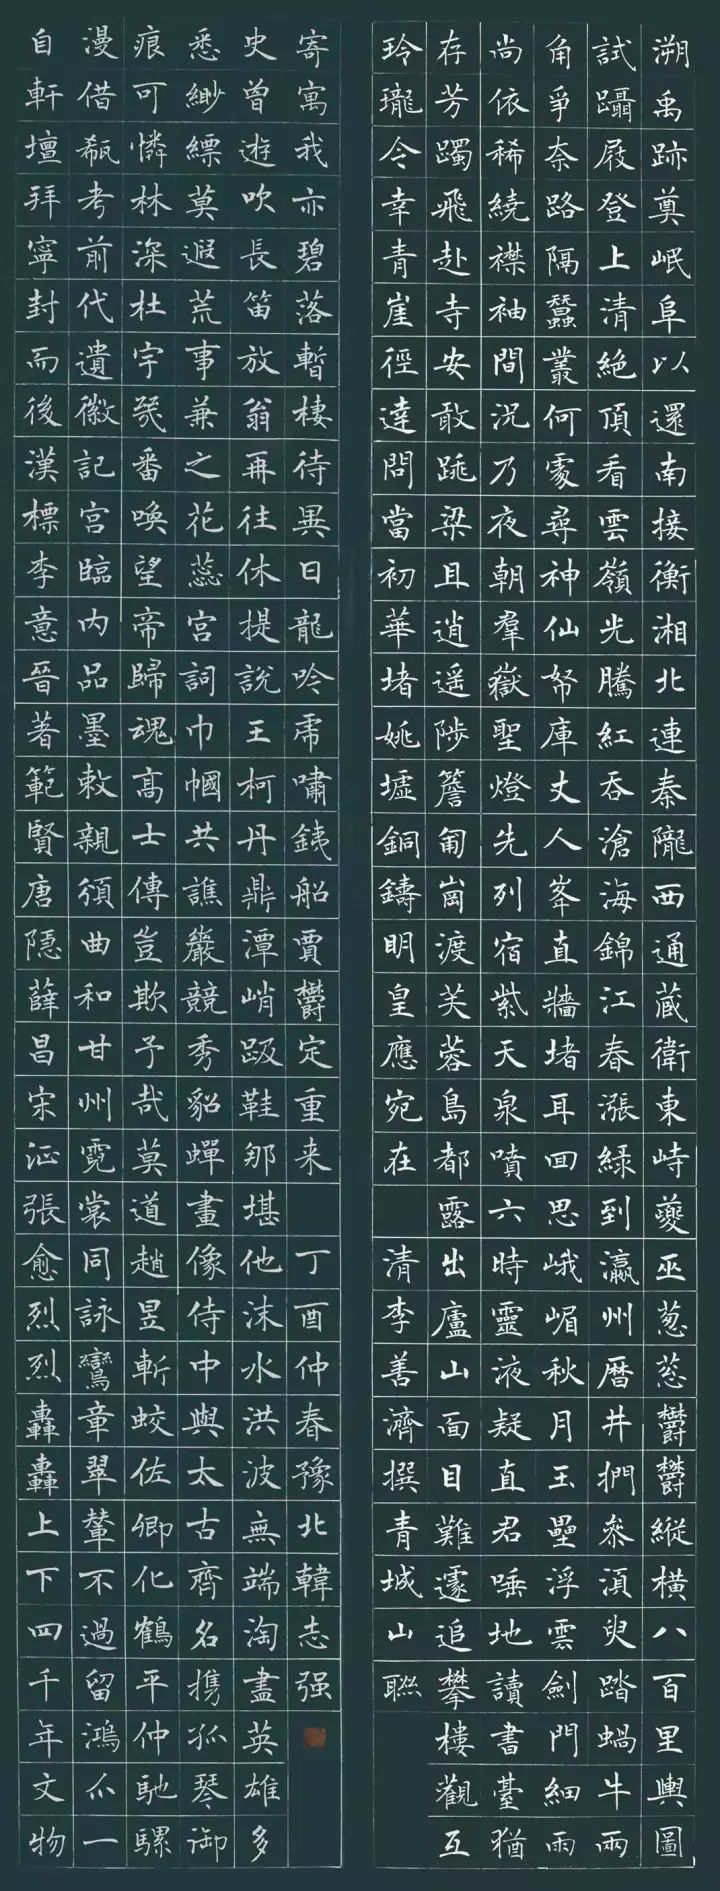 溯禹跡奠岷阜以還南接衡湘北連秦隴西通藏衛東峙夔巫葱葱鬱鬱縱橫八百里輿圖
試躡屐登上清絕頂看雲嶺光騰紅吞滄海錦江春漲綠到瀛州曆井捫參湏臾踏蝸牛兩
角爭奈路隔蠶叢何處尋神仙帑庫丈人峯直牆堵耳回思峨嵋秋月玉壘浮雲劍門細雨
尚依稀繞襟袖間況乃夜朝羣嶽聖燈先列宿紫天泉噴六時靈液疑直君唾地讀書臺猶
存芳躅飛赴寺安敢跳梁且逍遥陟簷匍崗渡芙蓉島都露出廬山面目難遽追攀樓觀互
玲瓏今幸青崖徑達問當初華堵姚墟銅鑄明皇應宛在
清李善濟撰青城山聯
自軒壇拜寧封而後漢標李意晉著範賢唐隱薛昌宋沚張愈烈烈轟轟上下四千年文物
漫借瓻考前代遺徽記宮臨內品墨敕親頒曲和甘州霓裳同詠鸞章翠輦不過留鴻爪一
痕可憐林深杜宇幾番喚望帝歸魂高士傳豈欺予哉莫道趙昱斬蛟佐卿化鶴平仲馳騾
悉緲縹莫遐荒事兼之花蕊宮詞巾幗共譙巖競秀貂蟬畫像侍中與太古齊名携孤琴御
史曾遊吹長笛放翁再往休提說王柯丹鼎潭峭趿鞋那堪他沫水洪波無端淘盡英雄多
寄寓我亦碧落暫棲待異日龍吟虎嘯銕船賈鬱定重来
丁酉仲春豫北韓志强